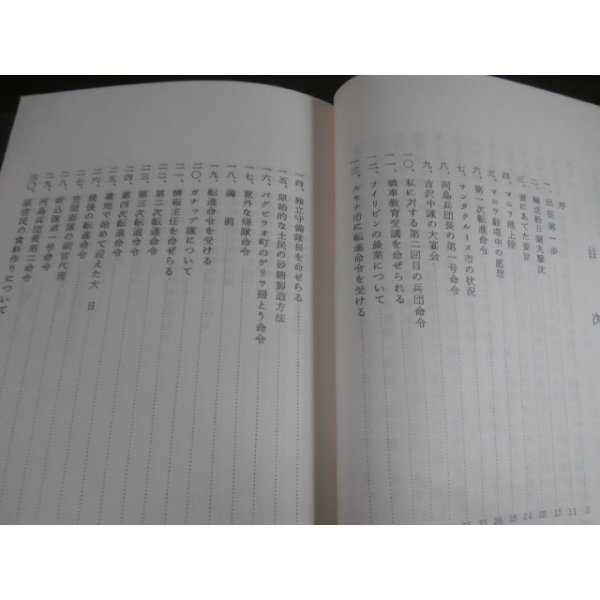 目次
序
一、出征第一歩
二、輸送船日蘭丸撃沈
三、妻にあてた要旨
四、マニラ港上陸
五、マニラ駐屯中の感想
六、第一次転進命令
七、サンタクルース市の状況
八、河島兵団長の第一号命令
九、吉沢中隊の大宴会
一〇、私に対する第二回目の兵団命令
一一、戦車教育受講を命ぜられる
一二、フイリピンの農業について
一三、ルセナ市に転進命令を受ける
一四、独立守備隊長を命ぜらる
一五、原始的な土民の砂糖製造方法
一六、パグビラオ町のゲリラ掃とう命令
一七、意外な帰隊命令
一八、
一九、転進命令を受ける
二〇、ガナップ隊について
二一、情報主任を命ぜらる
二二、第二次転進命令
二三、第三次転進命令
二四、第四次転進命令
二五、着地で始めて迎えた大日
二六、最後の転進命令
二七、笠間部隊の副官代理
二八、斬込隊第一号命令
二九、河島兵団長第二命令
三〇、原住民の食料作りについて